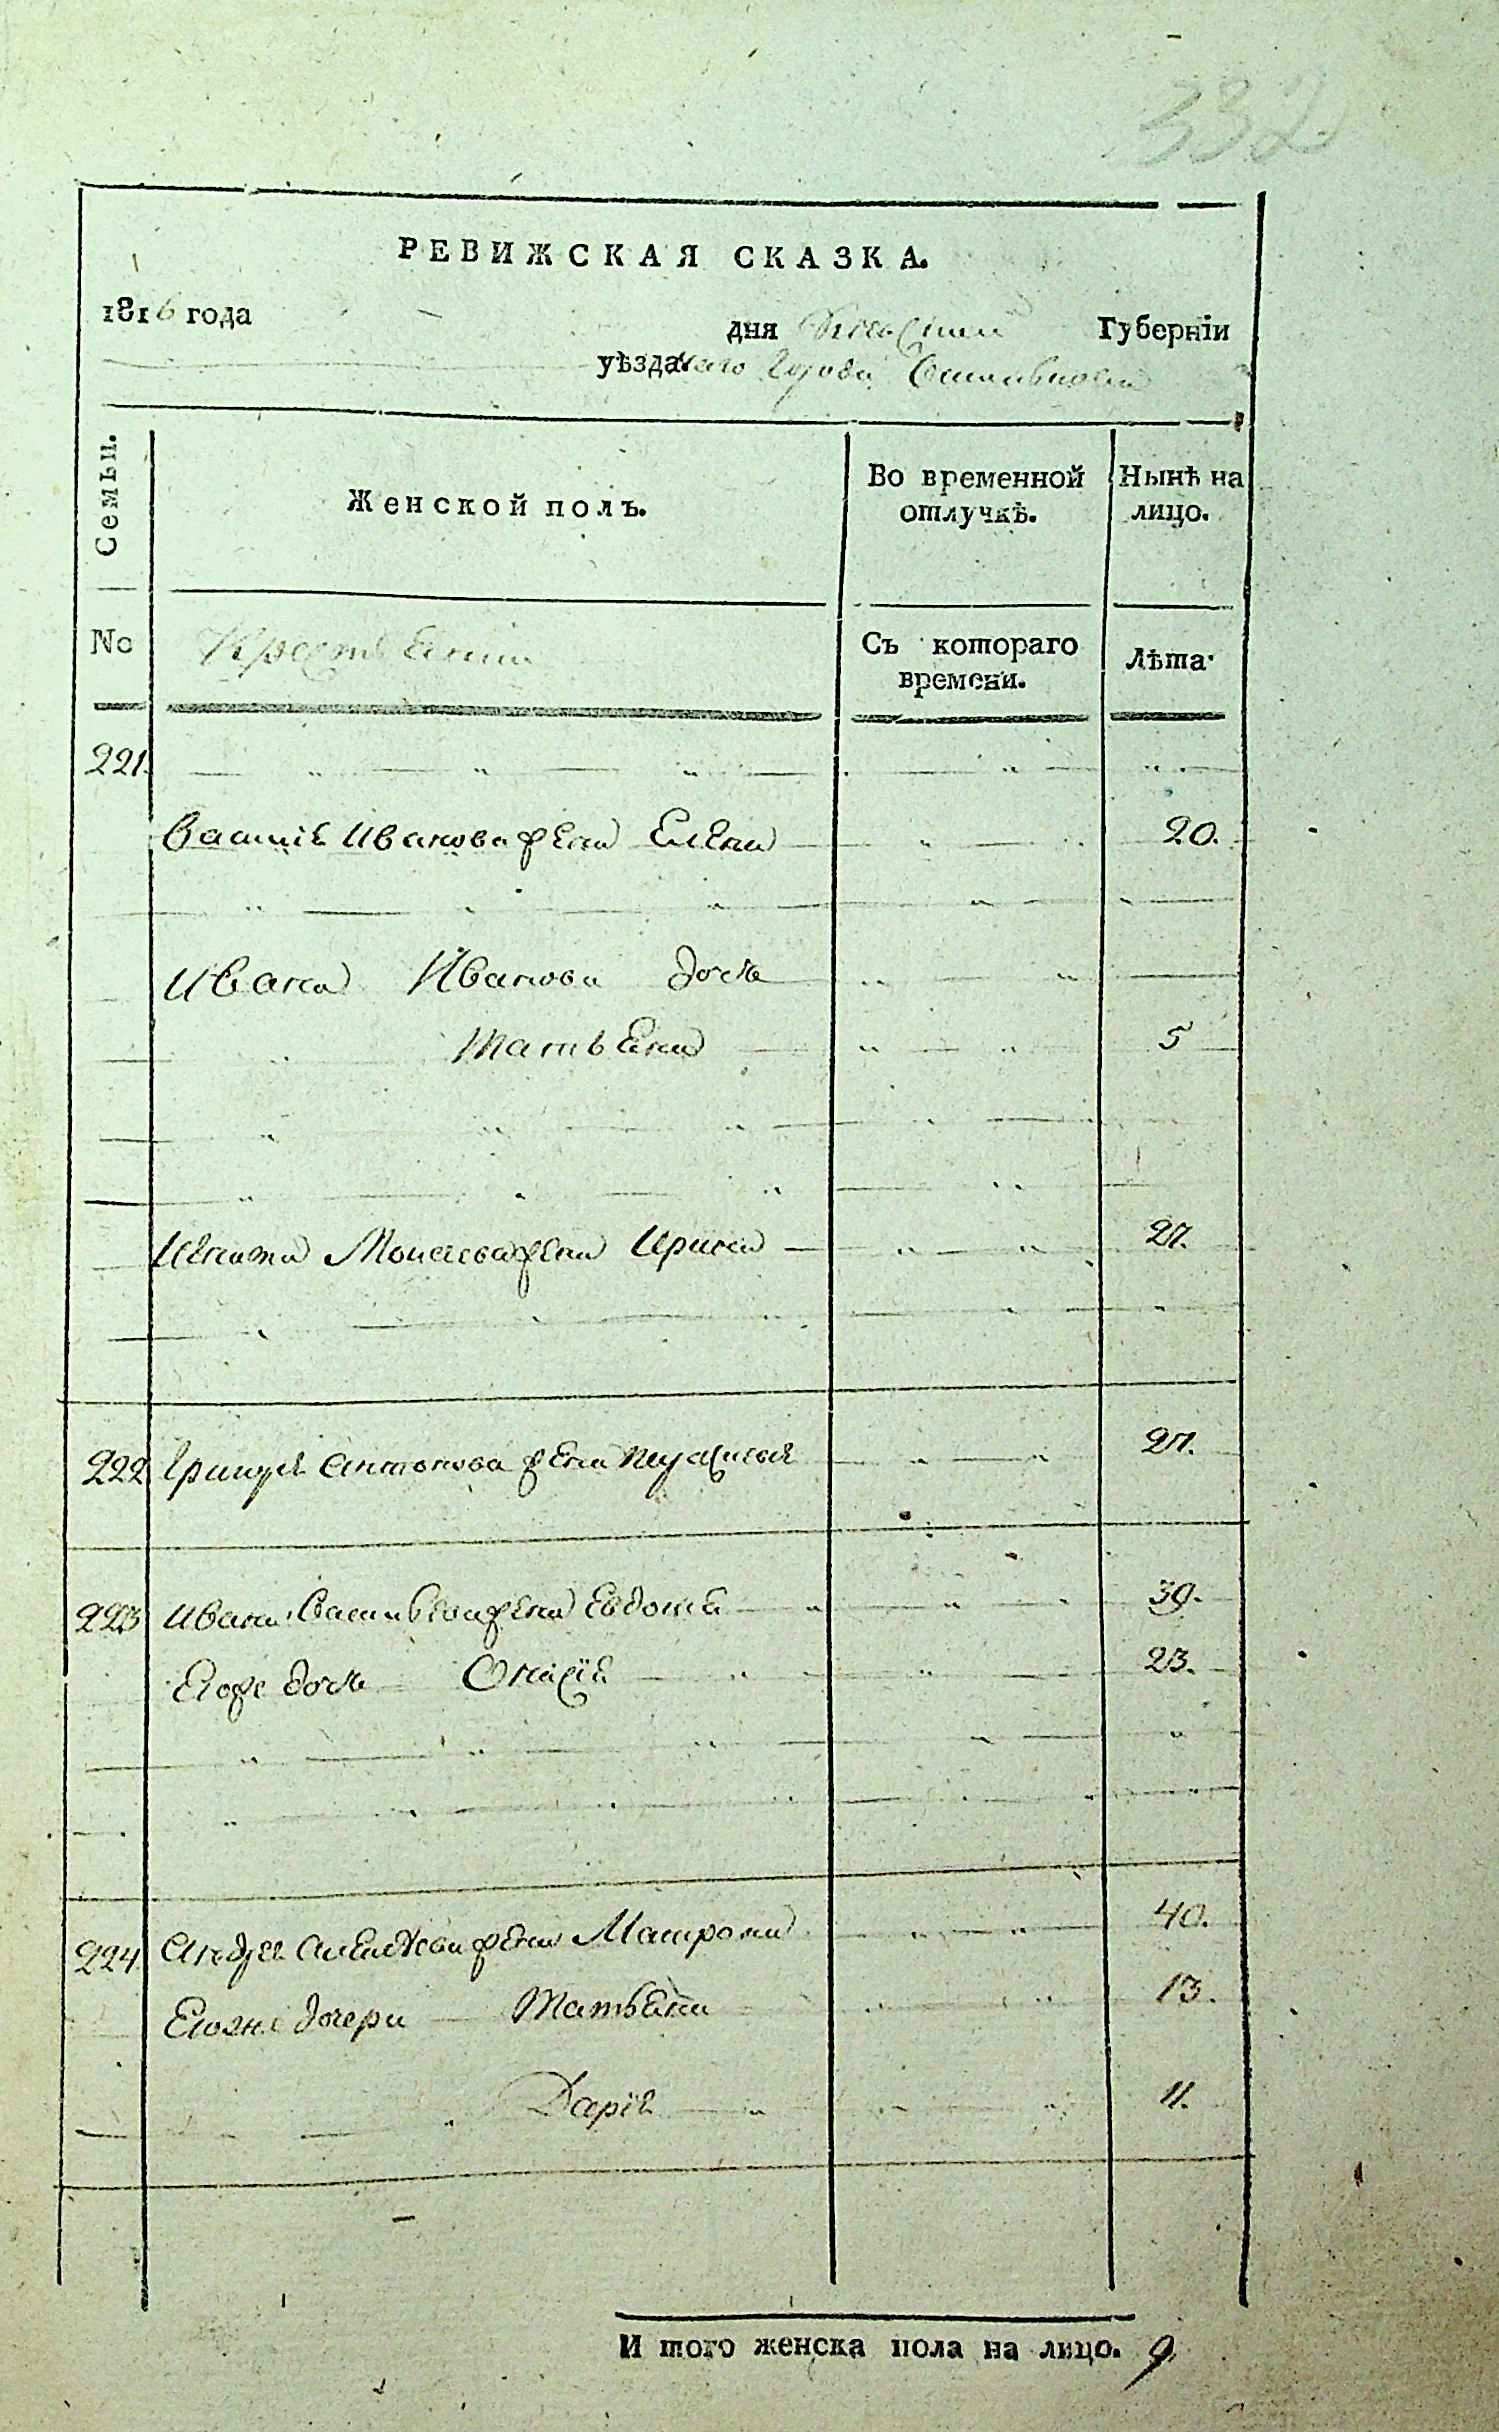 332
РЕВИЖСКАЯ СКАЗКА.
1816 года
дня Киевской Губернїи
уѣзда города
Семьи.
Женской полъ.
Во временной отлучкѣ.
Нынѣ на лицо.
No
Крестьяни
Съ котораго времени.
Лѣта.
221.
Василія Иванова жена Елена 20.
Ивана Иванова дочь
Татьяна 5
Игната Моисеева жена Ирина 27.
222 Григорія Антонова жена 27.
223 Ивана Васильева жена Евдокія 39.
Его же дочь 23.
224. Андрея Алексѣева жена Матрона 40.
Его же дочери Татьяна 13.
Дарія 11.
И того женска пола на лицо. 9